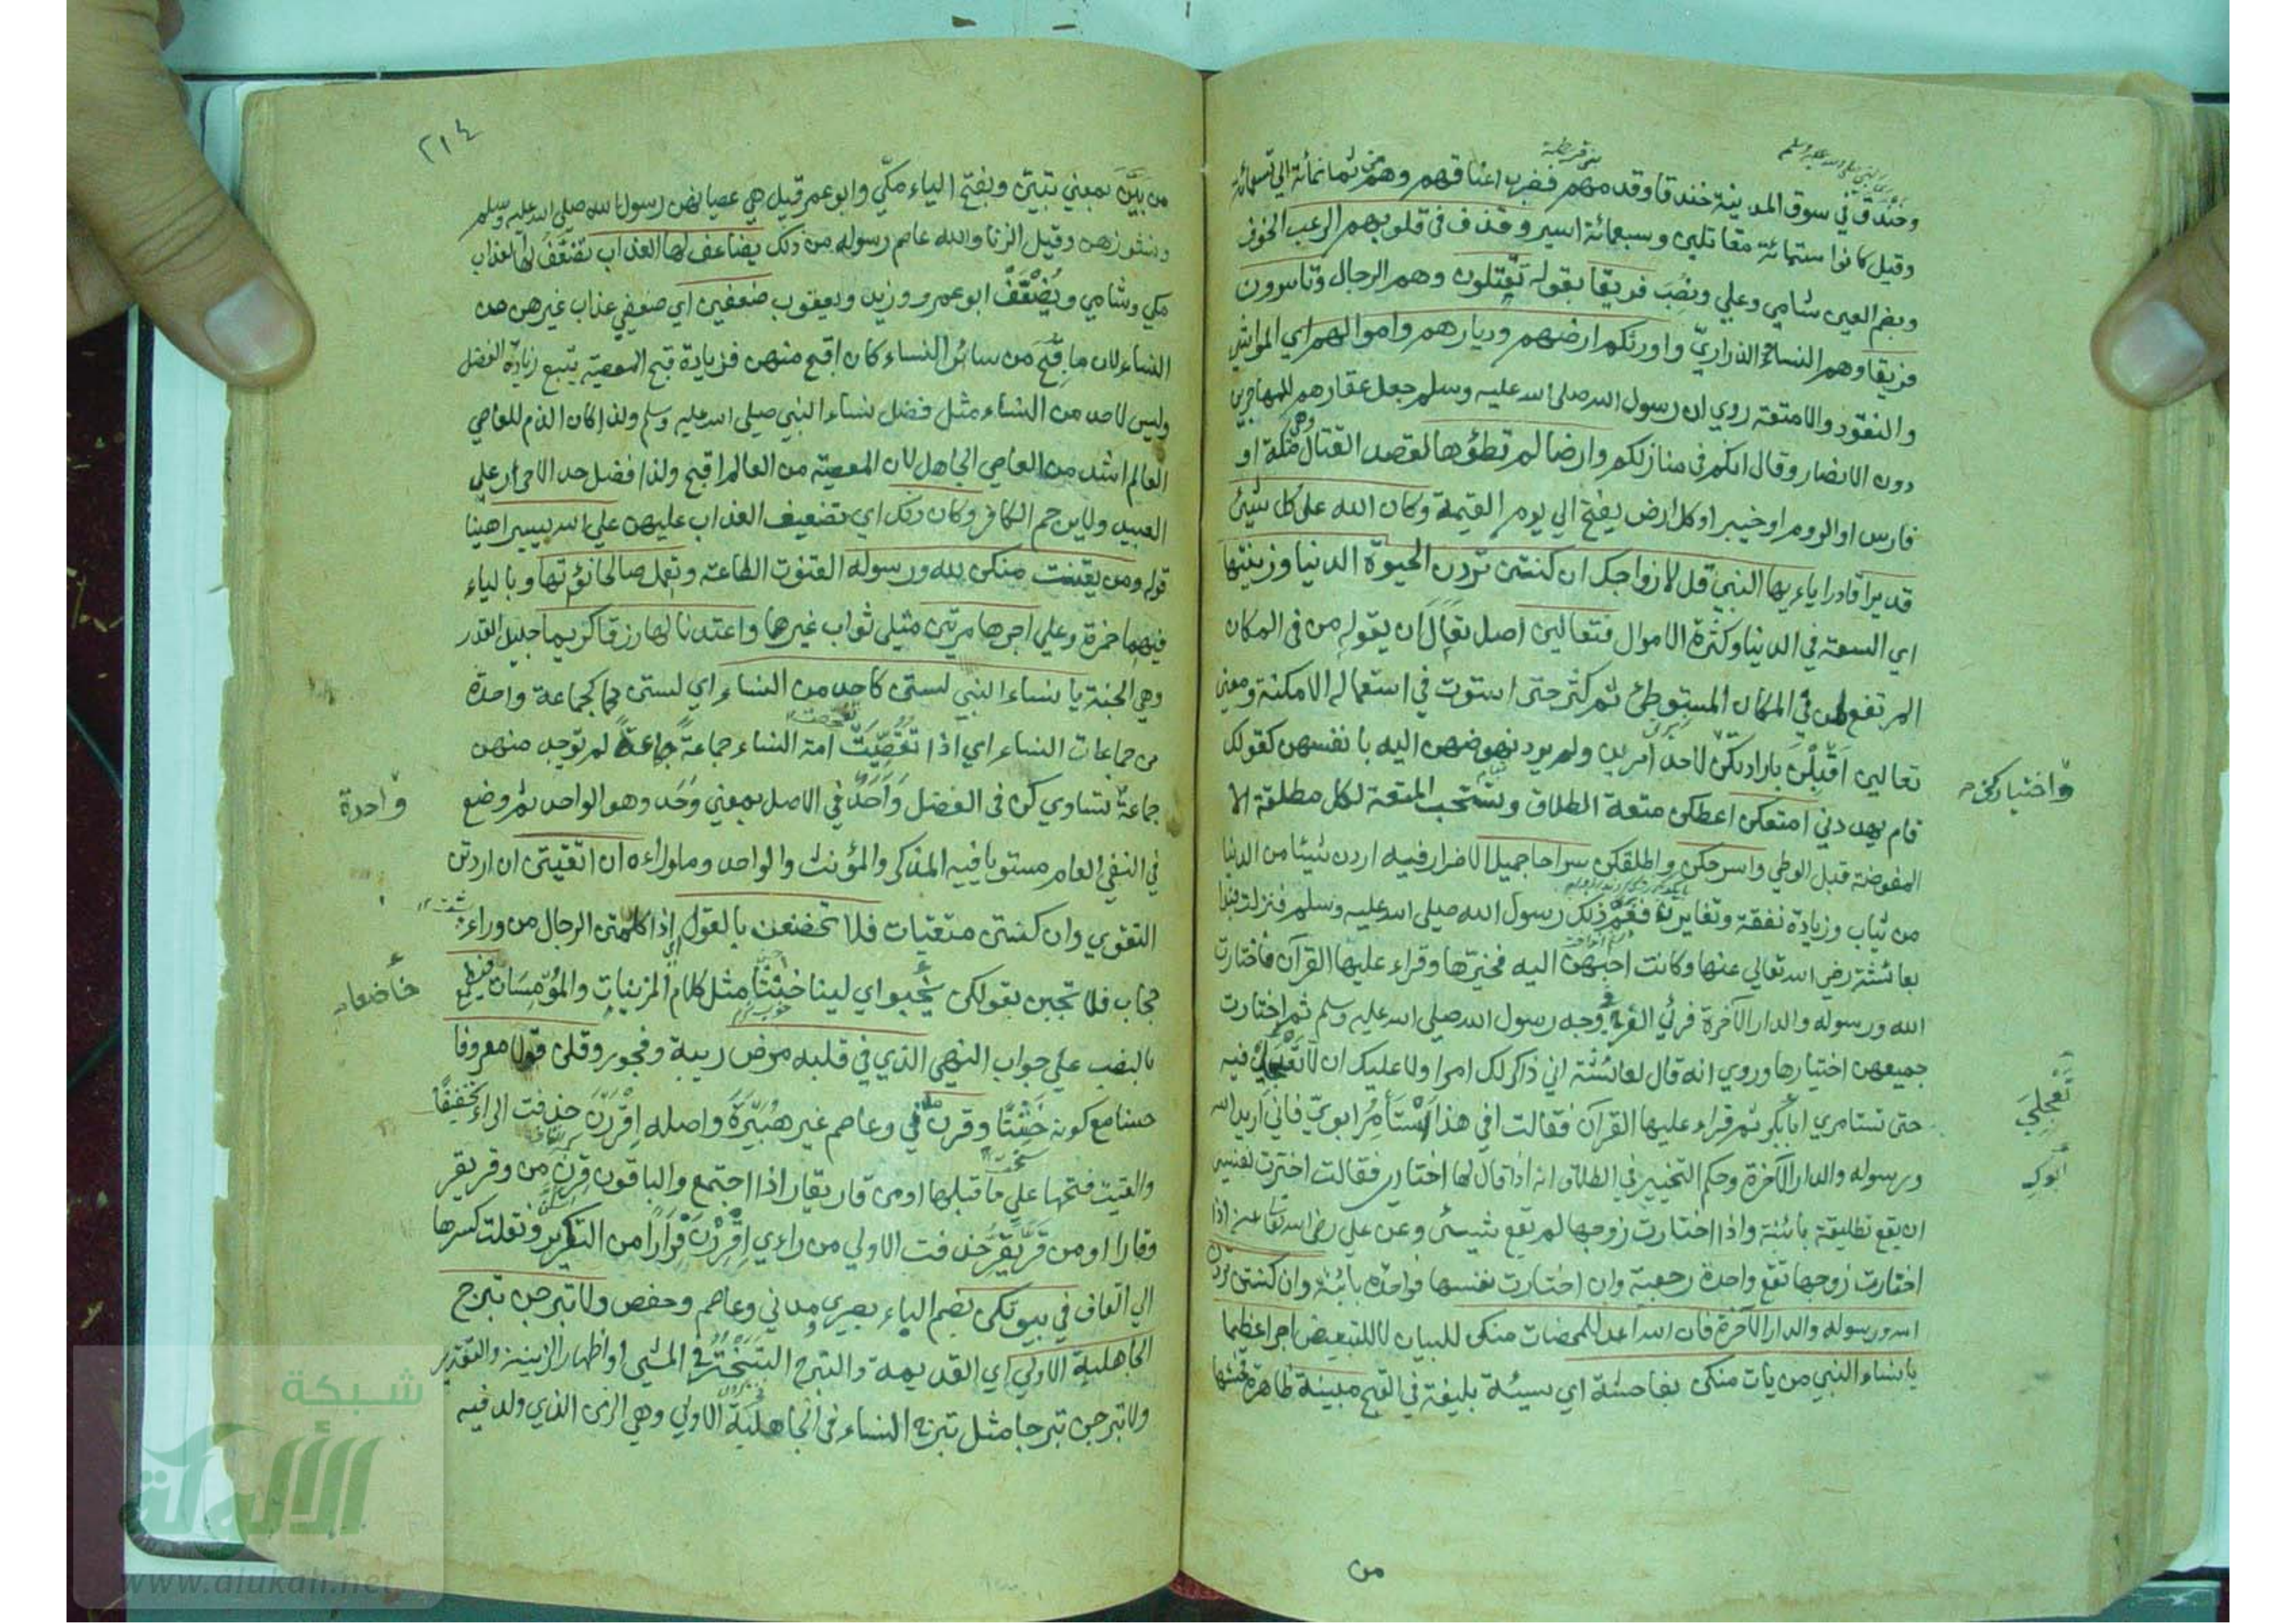 وخندق في سوق المدينة خندقا وقدمهم فضرب اعناقهم وهم من ثمانمائة الي تسعمائة
وقيل كانوا ستمائة مقاتلين وسبعمائة اسير وقذف في قلوبهم الرعب الخوف
وبضم العين شامي وعلي ونصب فريقا بقوله تقتلون وهم الرجال وتاسرون
فريقا وهم النساء والذراري واورثكم ارضهم وديارهم واموالهم اي المواشي
والنقود والامتعة روي ان رسول الله صلى الله عليه وسلم جعل عقارهم للمهاجرين
دون الانصار وقال انكم في منازلكم وارضا لم تطؤها لقصد القتال وهي مكة او
فارس او الروم او خيبر او كل ارض يفتح الي يوم القيمة وكان الله على كل شيئ
قديرا قادرا ياءيها النبي قل لازواجك ان كنتن تردن الحيوة الدنيا وزينتها
اي السعة في الدنيا وكثرة الاموال فتعالين اصل تعال ان يقوله من في المكان
المرتفع لمن في المكان المستوطئ ثم كثر حتى استوت في استعماله الامكنة ومعني
تعالين اقبلن بارادتكن لاحد امرين ولم يرد نهوضهن اليه بانفسهن كقولك
واختياركن
قام يهددني امتعكن اعطكن متعة الطلاق وتستحب المتعة لكل مطلقة الا
المفوضة قبل الوطي واسرحكن واطلقكن سراحا جميلا لاضرار فيه اردن شيئا من الدنيا
من ثياب وزيادة نفقة وتغايرن فغم ذلك رسول الله صلى الله عليه وسلم فنزلت فبدا
بعائشة رضي الله تعالي عنها وكانت احبهن اليه فخيرها وقراء عليها القرآن فاختارت
الله ورسوله والدار الآخرة فرئي الفرح في وجه رسول الله صلى الله عليه وسلم ثم اختارت
جميعهن اختيارها وروي انه قال لعائشة اني ذاكر لك امرا ولا عليك ان لا تعجلي فيه
تعجلي
حتى تستامري ابابكر ثم قراء عليها القرآن فقالت افي هذا استأمر ابوي فاني اريد الله
ابوك
ورسوله والدار الآخرة وحكم التخيير في الطلاق انه اذا قال لها اختاري فقالت اخترت نفسي
ان يقع تطليقة بائنة واذا اختارت زوجها لم يقع شيئ وعن علي رضي الله تعا عنه اذا
اختارت زوجها تقع واحدة رجعية وان اختارت نفسها فواحدة بائنة وان كنتن تردن
الله ورسوله والدار الآخرة فان الله اعد للمحصنات منكن للبيان لا للتبعيض اجرا عظيما
يا نساء النبي من يات منكن بفاحشة اي سيئة بليغة في القبح مبينة ظاهرة فحشها
من
٢١٤
من بين بمعني تبين وبفتح الياء مكي وابو عمر قيل هي عصيانهن رسول الله صلى الله عليه وسلم
ونشوزهن وقيل الزنا والله عاصم رسوله من ذلك يضاعف لها العذاب نضعف لها العذاب
مكي وشامي ويضعف ابو عمرو وزيد ويعقوب ضعفين اي ضعفي عذاب غيرهن من
النساء لان ما قبح من سائر النساء كان اقبح منهن فزيادة قبح المعصية يتبع زيادة الفضل
وليس لاحد من النساء مثل فضل نساء النبي صلى الله عليه وسلم ولذا كان الذم للعاصي
العالم اشد من العاصي الجاهل لان المعصية من العالم اقبح ولذا فضل حد الاحرار علي
العبيد ولا يرجم الكافر وكان ذلك اي تضعيف العذاب عليهن علي الله يسيرا هينا
قوله ومن يقنت منكن لله ورسوله القنوت الطاعة وتعمل صالحا نؤتها وبالياء
فيهما حمزة وعلي اجرها مرتين مثلي ثواب غيرها واعتدنا لها رزقا كريما جليل القدر
وهي الجنة يا نساء النبي لستن كاحد من النساء اي لستن كجماعة واحدة
من جماعات النساء اي اذا تقصيت امة النساء جماعة جماعة لم توجد منهن
جماعة تساوي كن في الفضل واحد في الاصل بمعني وحد وهو الواحد ثم وضع
واحدة
في النفي العام مستويا فيه المذكر والمؤنث والواحد وما وراءه ان اتقيتن ان اردتن
التقوي وان كنتن متقيات فلا تخضعن بالقول اي اذا كلمتن الرجال من وراء
حجاب فلا تجبن بقولكن اي لينا خنثا مثل كلام المزنيات والمؤمسات فيطمع
خاضعا
بالنصب علي جواب النهي الذي في قلبه مرض ريبة وفجور وقلن قولا معروفا
حسنا مع كونه خشنا وقرن مدني وعاصم غير هبيرة واصله اقررن حذفت الراء تخفيفا
والقيت فتحها علي ما قبلها او من قار يقار اذا اجتمع والباقون قرن من وقر يقر
وقارا او من قر يقر حذفت الاولي من راءي اقررن قرارا من التكرير ونقلت كسرها
الي القاف في بيوتكن بضم الباء بصري ومدني وعاصم وحفص ولا تبرجن تبرج
الجاهلية الاولي اي القديمة والتبرج التبختر في المشي او اظهار الزينة والتقدير
ولا تبرجن تبرجا مثل تبرج النساء في الجاهلية الاولي وهي الزمن الذي ولد فيه
شبكة
الألوكة
www.alukah.net